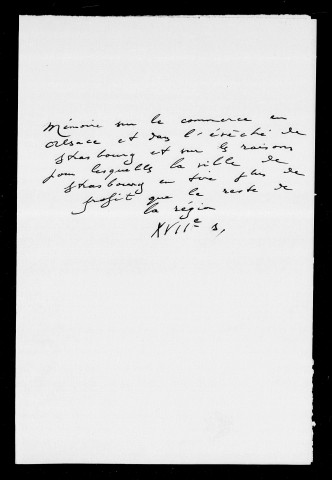 Mémoire sur le commerce en
Alsace et dans l'évêché de
Strasbourg et sur les raisons
pour lesquelles la ville de
Strasbourg en tire plus de
profit que le reste de
la région
XVIIe s.